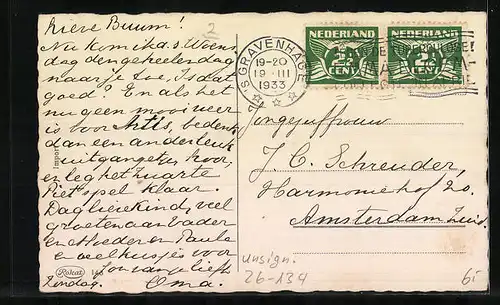 Lieve Buum!
Nu kom ik a.s. Woens
dag den geheelen dag
naar je toe, Is dat
goed? En als het
nu geen mooi weer
is voor Artis, bedenk
dan een ander leuk
uitgangetje, hoor,
en leg het zwarte
Piet spel klaar.
Dag lieve kind, veel
groeten aan vader
en Moeder en Paula
en veel kusjes voor
jou van je liefh.
Oma.
Zondag.
Import
Rokat
2
'S-GRAVENHAGE
19-20
19-III
1933
NEDERLAND
2½
CENT
NEDERLAND
2½
CENT
Jongejuffrouw
J. C. Schreuder,
Harmoniehof 20.
Amsterdam Zuid.
unsign.
26-134
6,-